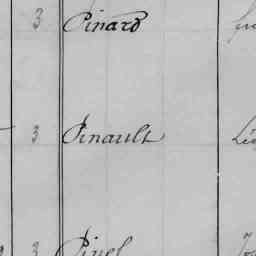 3 Pinard
3 Pinault
3 Pinel